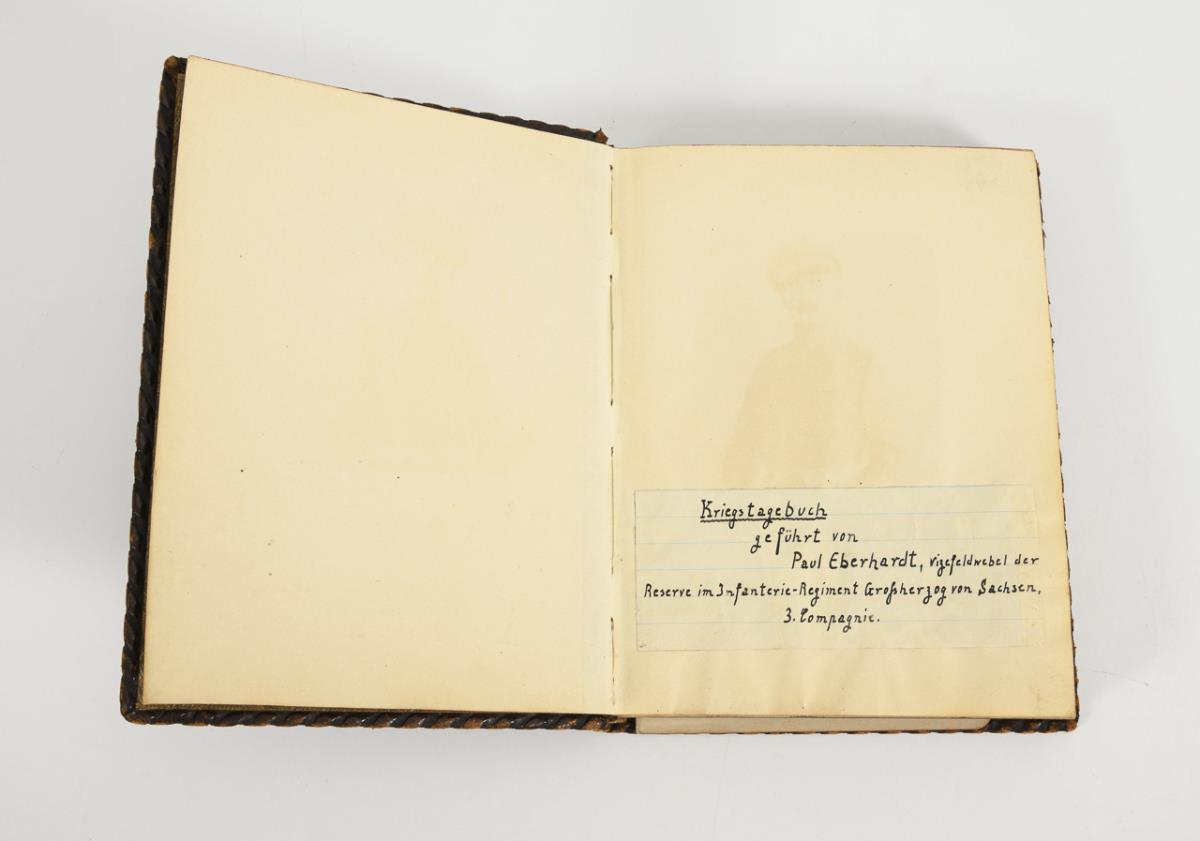 Kriegstagebuch
geführt von
Paul Eberhardt, Vizefeldwebel der
Reserve im Infanterie-Regiment Großherzog von Sachsen,
3. Compagnie.